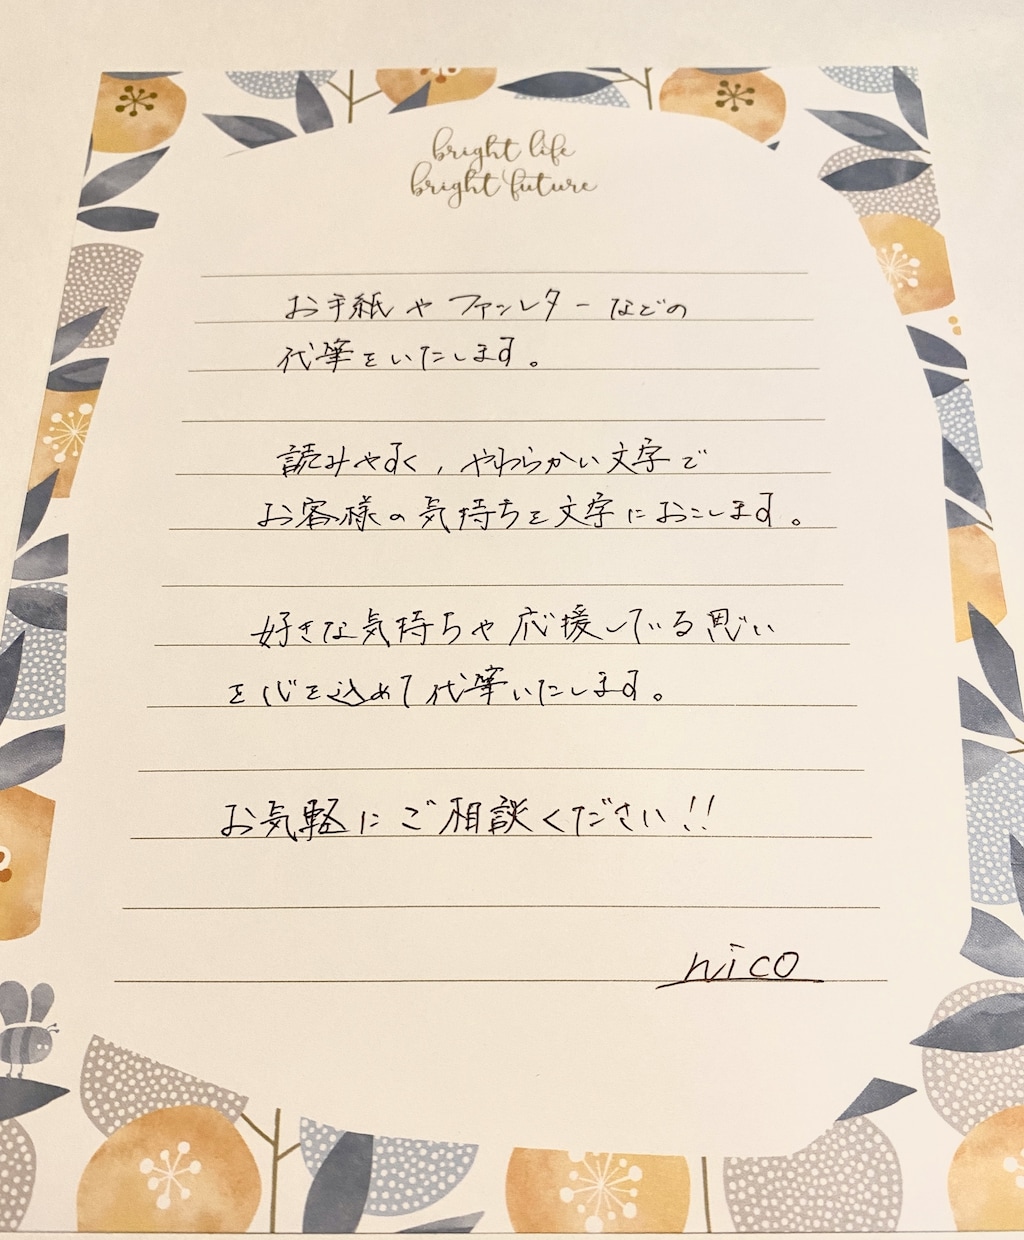 bright life
bright future
お手紙やファンレターなどの
代筆をいたします。
読みやすく、やわらかい文字で
お客様の気持ちを文字におこします。
好きな気持ちや応援している思い
を心を込めて代筆いたします。
お気軽にご相談ください!!
nico